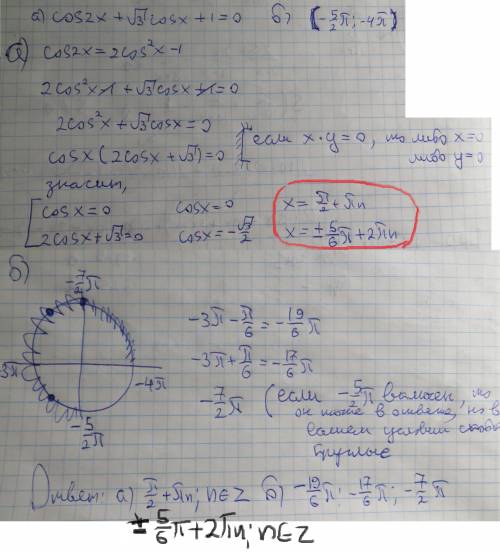 а) cos2x + √3 cosx + 1 = 0   б) (-5/2 π; -4π)
а) cos2x = 2cos²x - 1
2cos²x - 1 + √3 cosx + 1 = 0
2cos²x + √3 cosx = 0
cosx (2cosx + √3) = 0   [если x · y = 0, то либо x = 0
либо y = 0
значит,
cosx = 0   cosx = 0   x = π/2 + πn
2cosx + √3 = 0   cosx = -√3/2   x = ± 5/6 π + 2πn
б)
-7/2 π
-3π - π/6 = -19/6 π
-3π   -4π   -3π + π/6 = -17/6 π
-5/2 π   -7/2 π (если -5/2 π включен, то
он тоже в ответе, но в
вашем условии скобки
круглые
Ответ: а) π/2 + πn; n∈Z   б) -19/6 π; -17/6 π; -7/2 π
± 5/6 π + 2πn; n∈Z